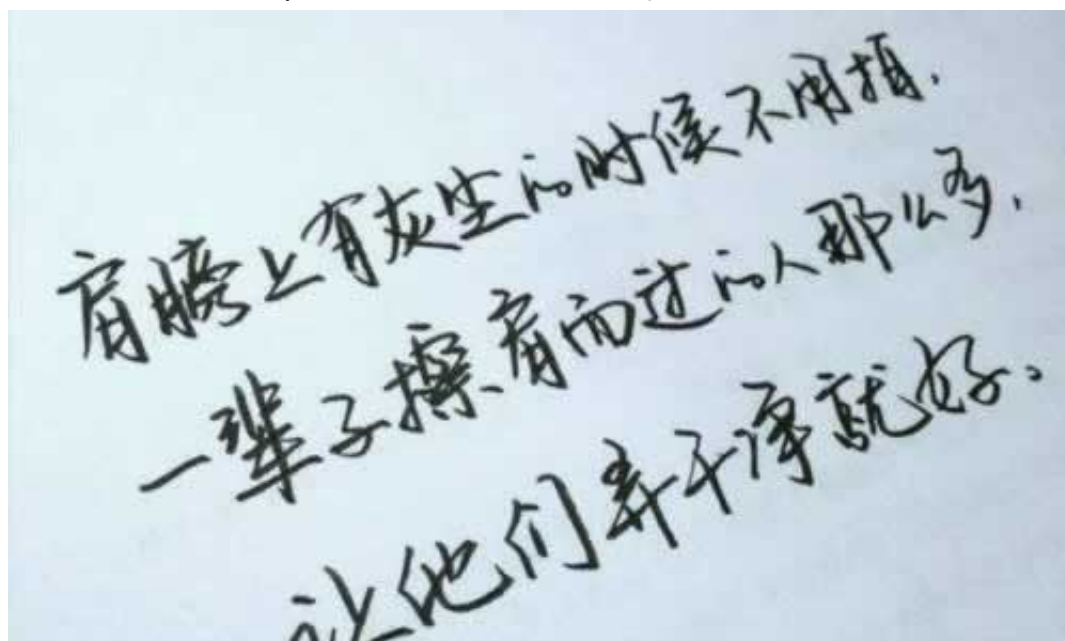 肩膀上有灰尘的时候不用掸.
一辈子擦肩而过的人那么多.
让他们弄干净就好。